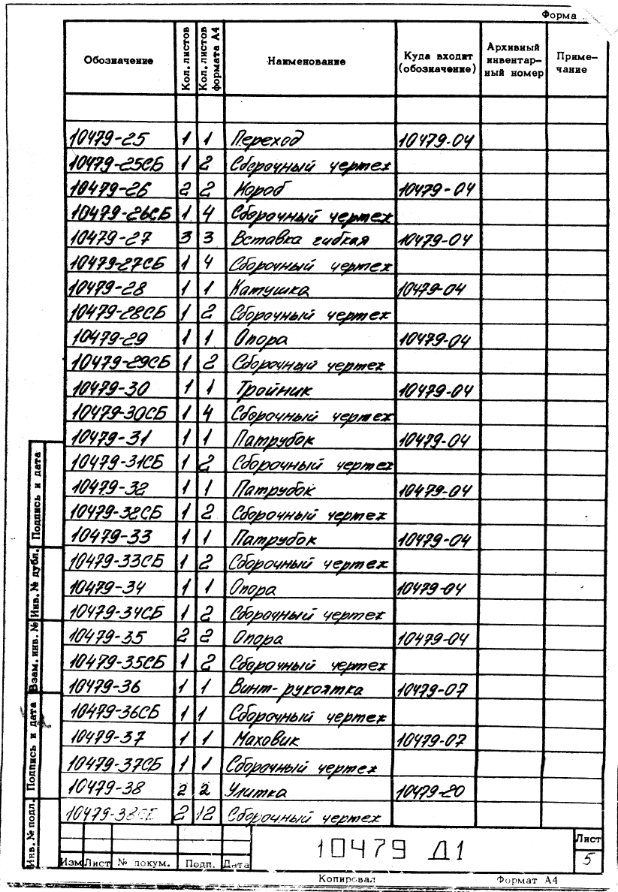 Форма
Обозначение Кол. листов Кол. листов формата А4 Наименование Куда входит (обозначение) Архивный инвентарный номер Примечание
10479-25 1 1 Переход 10479-04
10479-25СБ 1 2 Сборочный чертеж
10479-26 2 2 Короб 10479-04
10479-26СБ 1 4 Сборочный чертеж
10479-27 3 3 Вставка гибкая 10479-04
10479-27СБ 1 4 Сборочный чертеж
10479-28 1 1 Катушка 10479-04
10479-28СБ 1 2 Сборочный чертеж
10479-29 1 1 Опора 10479-04
10479-29СБ 1 2 Сборочный чертеж
10479-30 1 1 Тройник 10479-04
10479-30СБ 1 4 Сборочный чертеж
10479-31 1 1 Патрубок 10479-04
10479-31СБ 1 2 Сборочный чертеж
10479-32 1 1 Патрубок 10479-04
10479-32СБ 1 2 Сборочный чертеж
10479-33 1 1 Патрубок 10479-04
10479-33СБ 1 2 Сборочный чертеж
10479-34 1 1 Опора 10479-04
10479-34СБ 1 2 Сборочный чертеж
10479-35 2 2 Опора 10479-04
10479-35СБ 1 2 Сборочный чертеж
10479-36 1 1 Винт-рукоятка 10479-07
10479-36СБ 1 1 Сборочный чертеж
10479-37 1 1 Маховик 10479-07
10479-37СБ 1 1 Сборочный чертеж
10479-38 2 2 Улитка 10479-20
10479-38СБ 2 12 Сборочный чертеж
Подпись и дата
Инв. № дубл.
Взам. инв. №
Подпись и дата
Инв. № подл.
Изм Лист № докум. Подп. Дата
10479 Д1
Лист
5
Копировал Формат А4